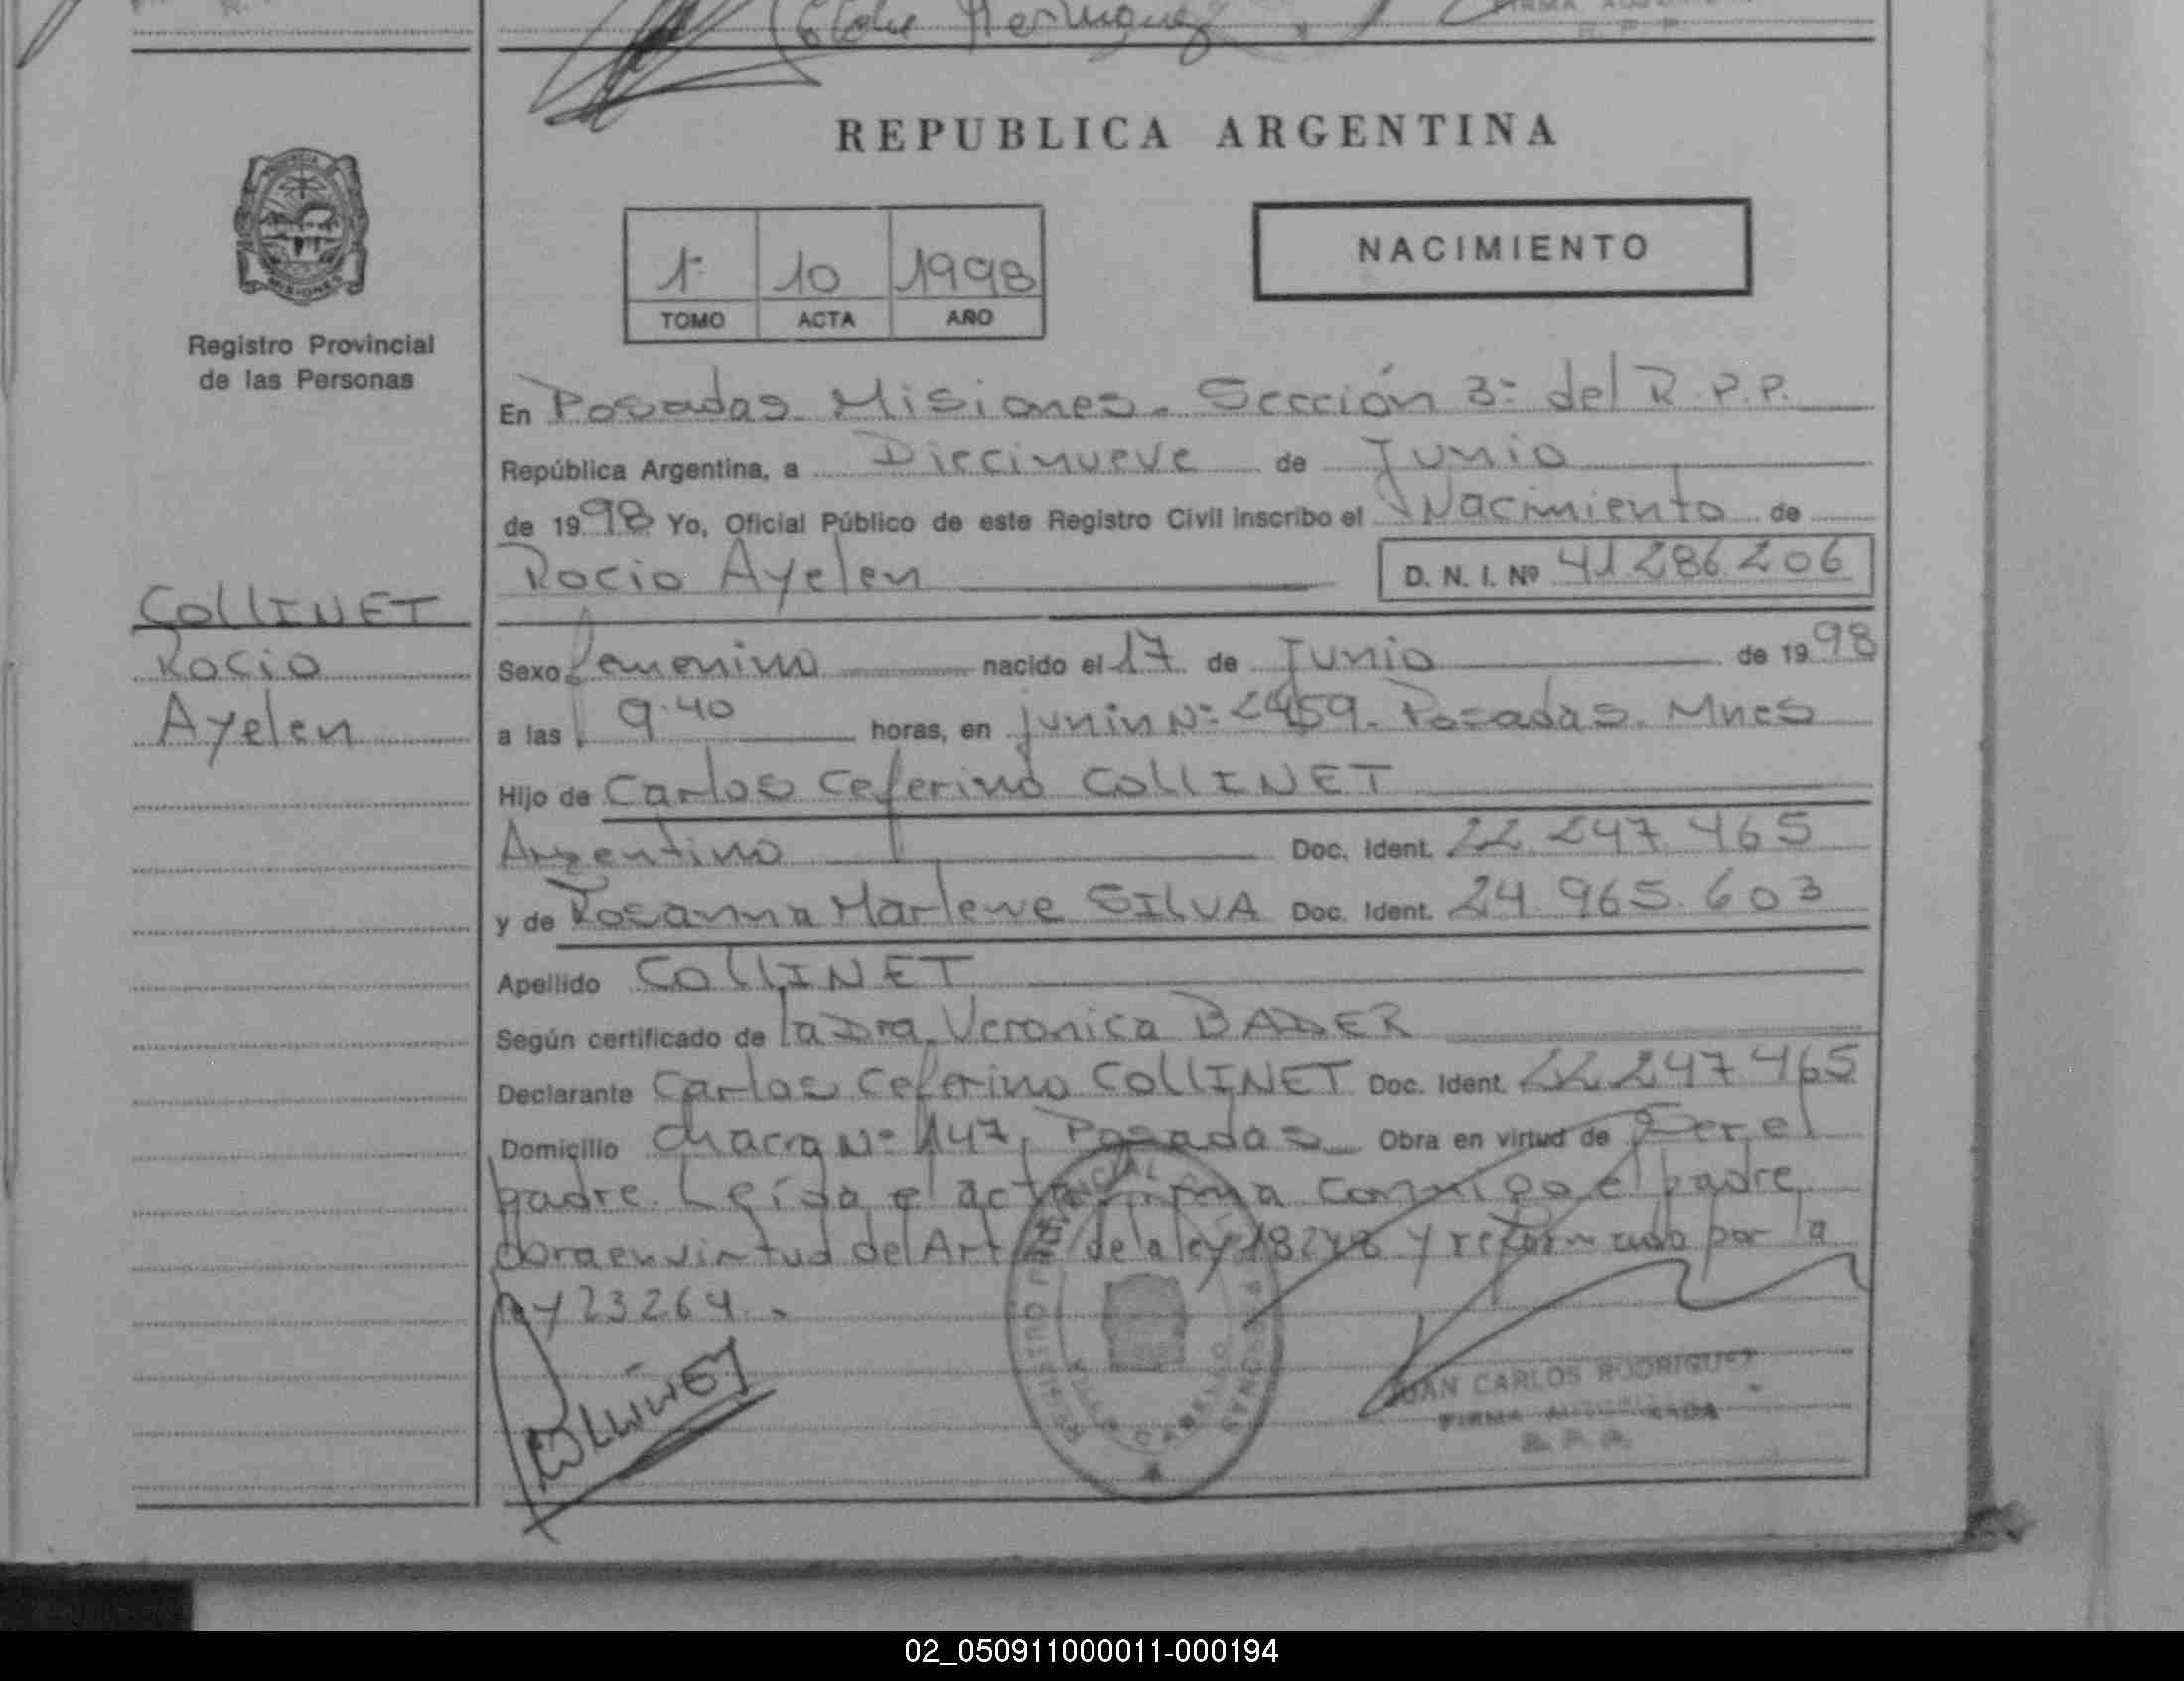 REPUBLICA ARGENTINA
1º 10 1998
TOMO ACTA AÑO
NACIMIENTO
MISIONES
Registro Provincial
de las Personas
En Posadas Misiones. Sección 3º del R.P.P.
República Argentina, a Diecinueve de Junio
de 1998 Yo, Oficial Público de este Registro Civil inscribo el Nacimiento de
Rocio Ayelen D. N. I. Nº 41286206
COLLINET
Rocio
Ayelen
Sexo femenino nacido el 17 de Junio de 1998
a las 9.40 horas, en Junin Nº 2459. Posadas. Mnes
Hijo de Carlos Ceferino COLLINET
Argentino Doc. Ident. 22.247.465
y de Rosanna Marlene SILVA Doc. Ident. 24.965.603
Apellido COLLINET
Según certificado de la Dra. Veronica BADER
Declarante Carlos Ceferino COLLINET Doc. Ident. 22.247.465
Domicilio chacra Nº 147, Posadas Obra en virtud de Ser el
padre. Leída el acta firma conmigo el padre
obra en virtud del Art de la ley 18248 y reformado por la
ley 23264.
COLLINET
JUAN CARLOS RODRIGUEZ
FIRMA AUTORIZADA
R. P. P.
02_050911000011-000194